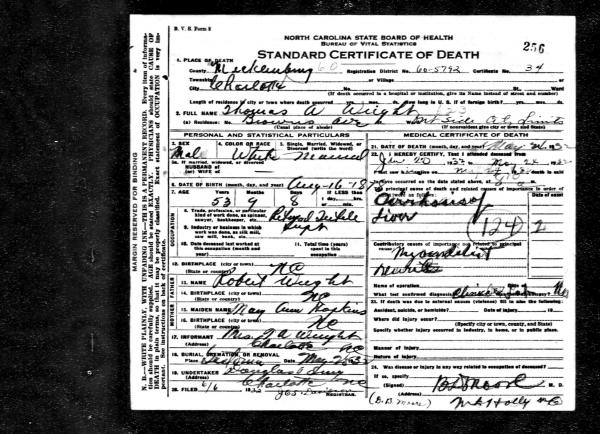 B. V. S. Form 8
NORTH CAROLINA STATE BOARD OF HEALTH
BUREAU OF VITAL STATISTICS
STANDARD CERTIFICATE OF DEATH
256
1. PLACE OF DEATH
County Mecklenburg Registration District No. 60-5792 Certificate No. 34
Township or Village
City Charlotte No. St. Ward
(If death occurred in a hospital or institution, give its Name instead of street and number)
Length of residence in city or town where death occurred yrs. mos. ds. How long in U. S. if of foreign birth? yrs. mos. ds.
2. FULL NAME Thomas A. Wright
(a) Residence: No. Browns Ave Out Side City Limits
(Usual place of abode) (If nonresident give city or town and State)
PERSONAL AND STATISTICAL PARTICULARS
3. SEX 4. COLOR OR RACE 5. Single, Married, Widowed, or Divorced (write the word)
Male White Married
5a. If married, widowed, or divorced
HUSBAND of
(or) WIFE of
6. DATE OF BIRTH (month, day, and year) Aug-16-187
7. AGE Years Months Days If LESS than
53 9 8
8. Trade, profession, or particular kind of work done, as spinner, sawyer, bookkeeper, etc.
Supt
9. Industry or business in which work was done, as silk mill, saw mill, bank, etc.
10. Date deceased last worked at this occupation (month and year)
11. Total time (years) spent in this occupation
OCCUPATION
12. BIRTHPLACE (city or town)
(State or country) NC
FATHER
13. NAME Robert Wright
14. BIRTHPLACE (city or town)
(State or country) NC
MOTHER
15. MAIDEN NAME Mary Ann Hopkins
16. BIRTHPLACE (city or town)
(State or country) NC
17. INFORMANT Mrs. T. A. Wright
(Address) Charlotte NC
18. BURIAL, CREMATION, OR REMOVAL
Place Date May 2 1932
19. UNDERTAKER Douglas & Sing
(Address) Charlotte NC
20. FILED 6/6 1932
REGISTRAR.
MEDICAL CERTIFICATE OF DEATH
21. DATE OF DEATH (month, day, and year) May 24 1932
22. I HEREBY CERTIFY, That I attended deceased from
Jan 20 1932 to May 24 1932
I last saw him alive on May 24 1932 death is said to
have occurred on the date stated above, at
The principal cause of death and related causes of importance in order of onset were as follows:
Cirrhosis of
Liver
(124) 2
Contributory causes of importance not related to principal cause:
Myocarditis
Name of operation
What test confirmed diagnosis? Clinical Was there an autopsy? No
23. If death was due to external causes (violence) fill in also the following:
Accident, suicide, or homicide? Date of injury 19
Where did injury occur?
(Specify city or town, county, and State)
Specify whether injury occurred in industry, in home, or in public place.
Manner of injury
Nature of injury
24. Was disease or injury in any way related to occupation of deceased?
If so, specify
(Signed) B D Moore M. D.
(Address) Mt Holly NC
MARGIN RESERVED FOR BINDING
N. B.—WRITE PLAINLY, WITH UNFADING INK—THIS IS A PERMANENT RECORD. Every item of information should be carefully supplied. AGE should be stated EXACTLY. PHYSICIANS should state CAUSE OF DEATH in plain terms, so that it may be properly classified. Exact statement of OCCUPATION is very important. See instructions on back of certificate.